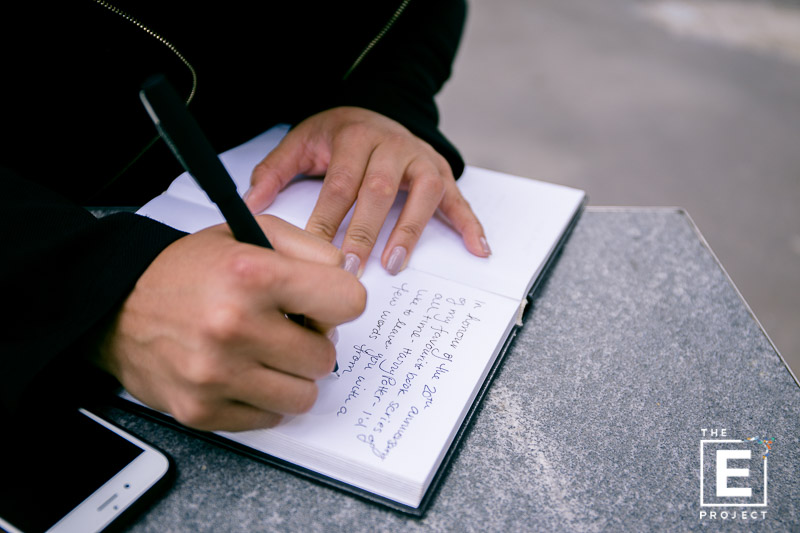 in honour of the 20th anniversary
of my favourite book series of
all time - Harry Potter - I'd
like to leave you with a
few words from
THE
E
PROJECT